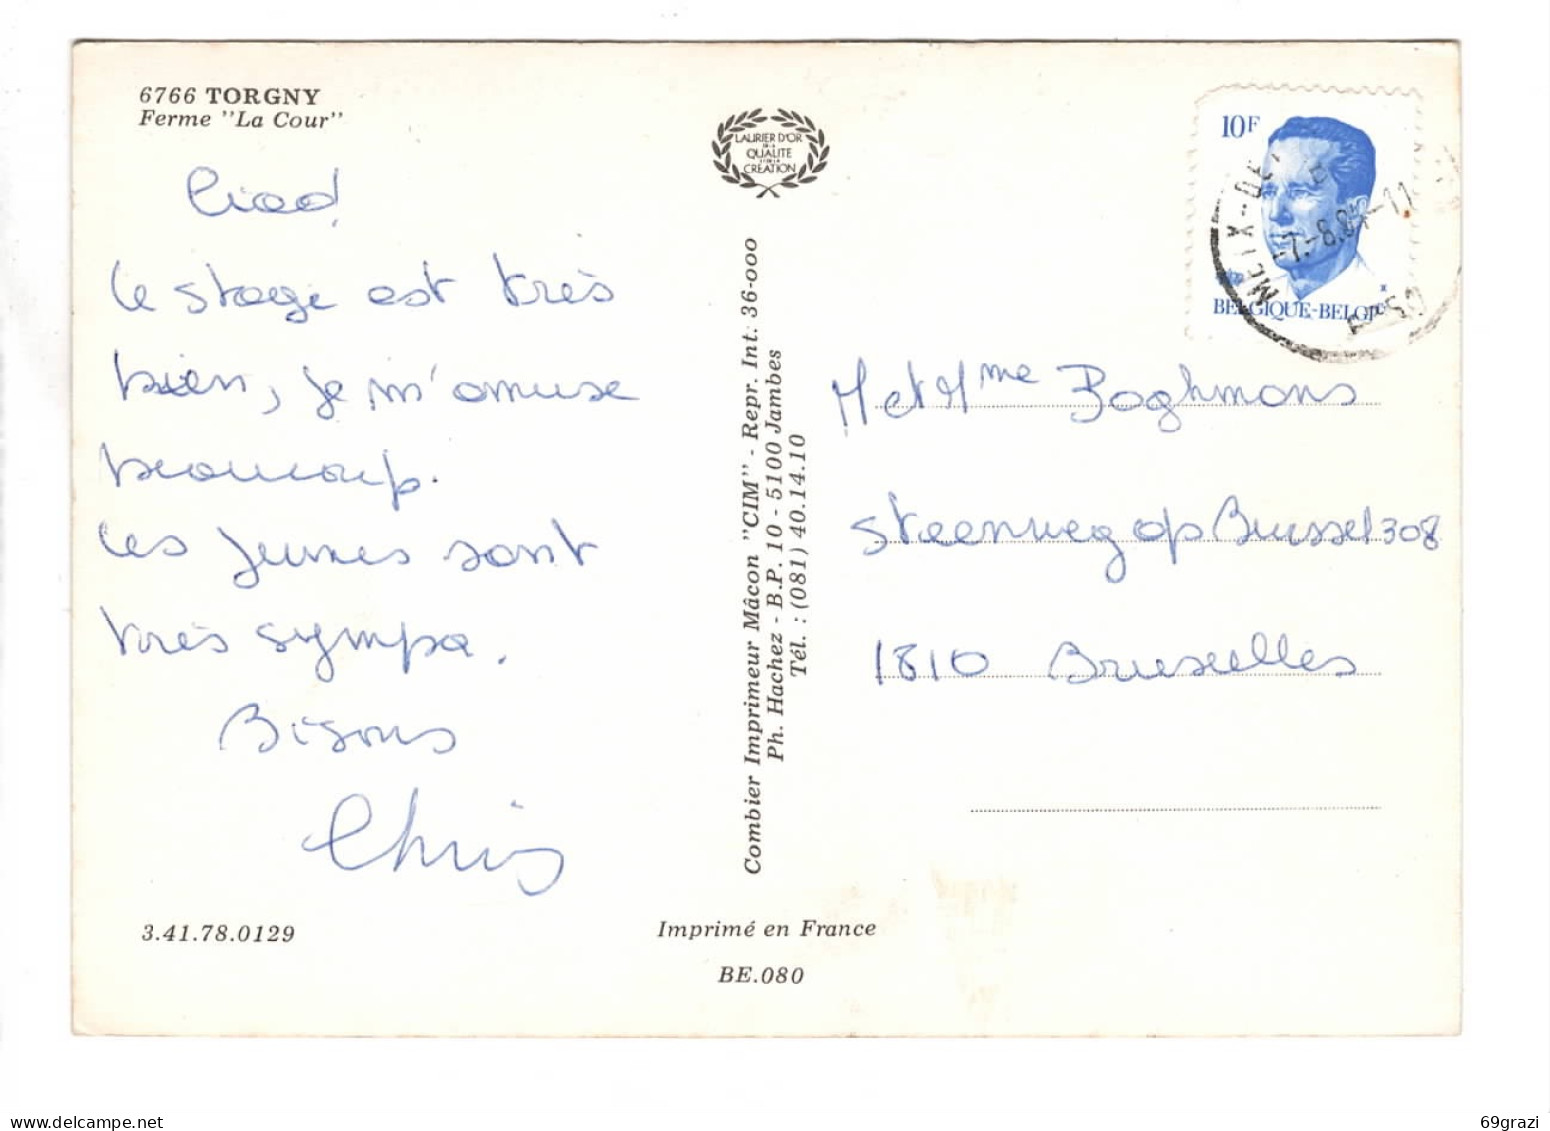 6766 TORGNY
Ferme "La Cour"
Le stage est très
bien, je m'amuse
beaucoup.
Les jeunes sont
très sympa.
Bisous
Chris
3.41.78.0129
LAURIER D'OR
DE LA
QUALITE
ET DE LA
CREATION
Combier Imprimeur Mâcon "CIM" - Repr. Int. 36-000
Ph. Hachez - B.P. 10 - 5100 Jambes
Tél. : (081) 40.14.10
Imprimé en France
BE.080
10F
BELGIQUE-BELGI
MEIX-DE
-7.-8.84-11
M et Mme Boghmans
Steenweg op Brussel 308
1810 Bruxelles
www.delcampe.net
69grazi